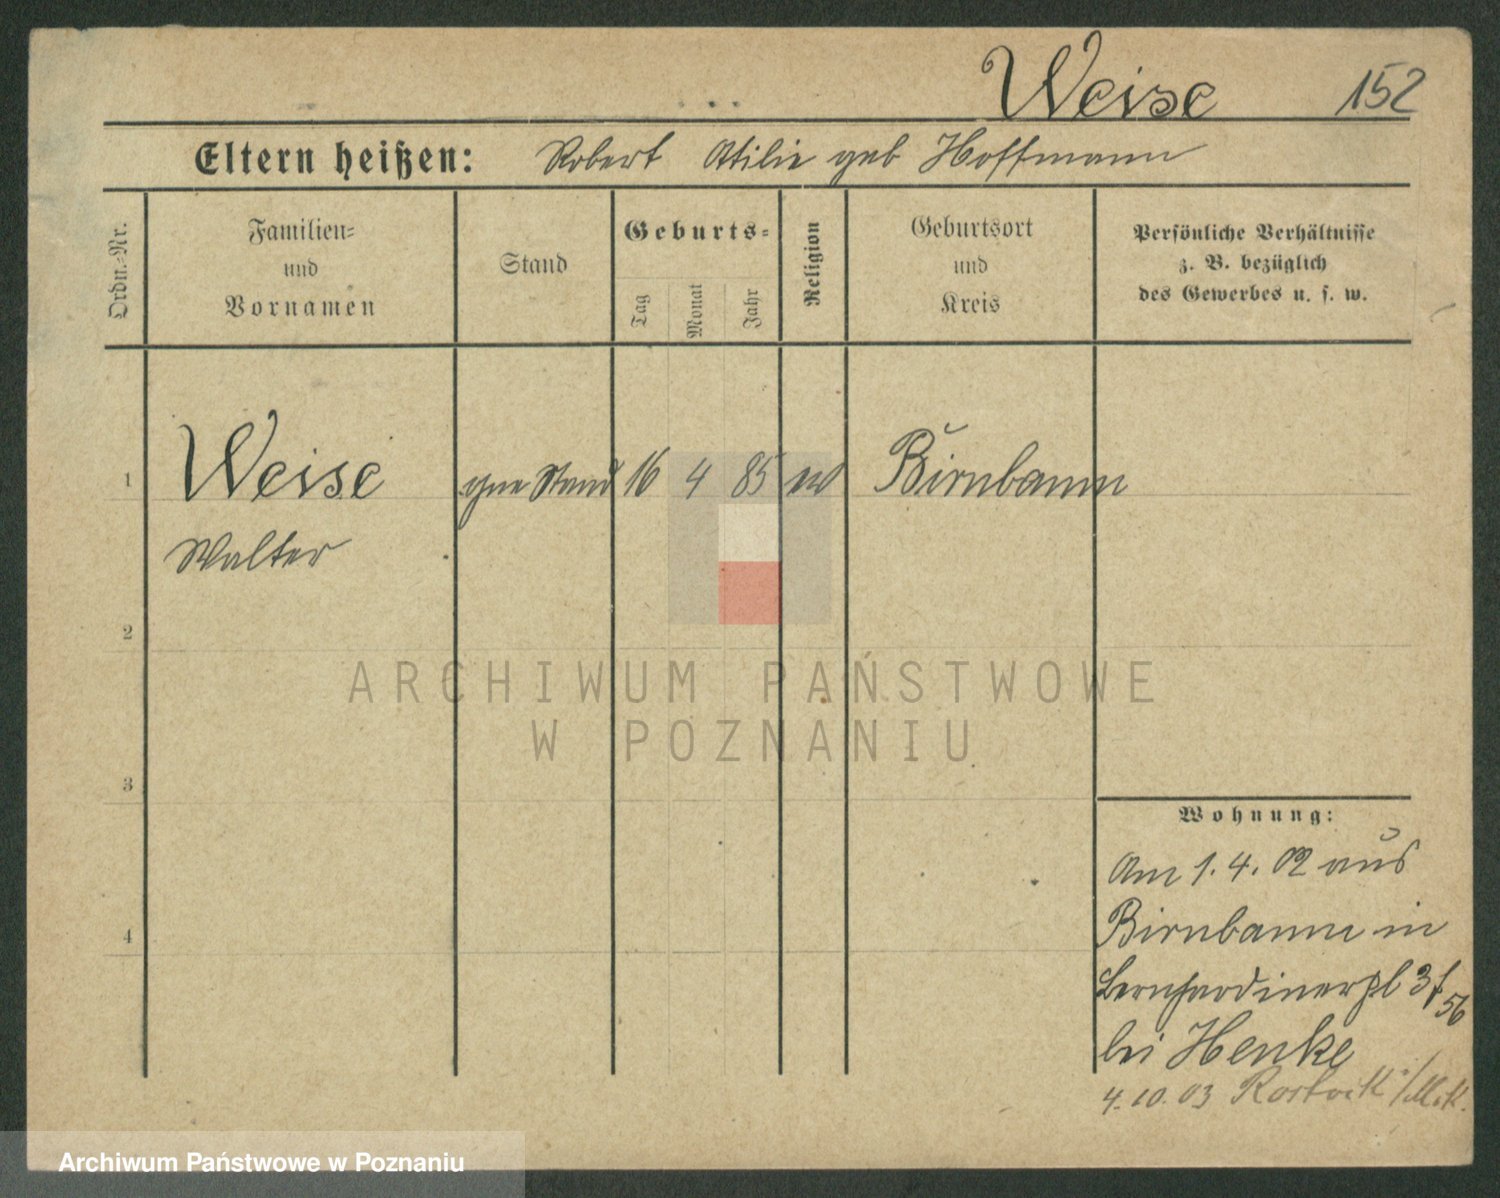 Weise 152
Eltern heißen: Robert Otilie geb Hoffmann
Ordn.-Nr.
Familien-
und
Vornamen
Stand
Geburts-
Tag
Monat
Jahr
Religion
Geburtsort
und
Kreis
Persönliche Verhältnisse
z. B. bezüglich
des Gewerbes u. s. w.
1 Weise Stand 16 4 85 ev Birnbaum
Walter
2
3
4
Wohnung:
Am 1.4.02 aus
Birnbaum in
Bernhardinerpl 3/56
bei Henke
4.10.03 Rostock i/Meck.
ARCHIWUM PAŃSTWOWE
W POZNANIU
Archiwum Państwowe w Poznaniu